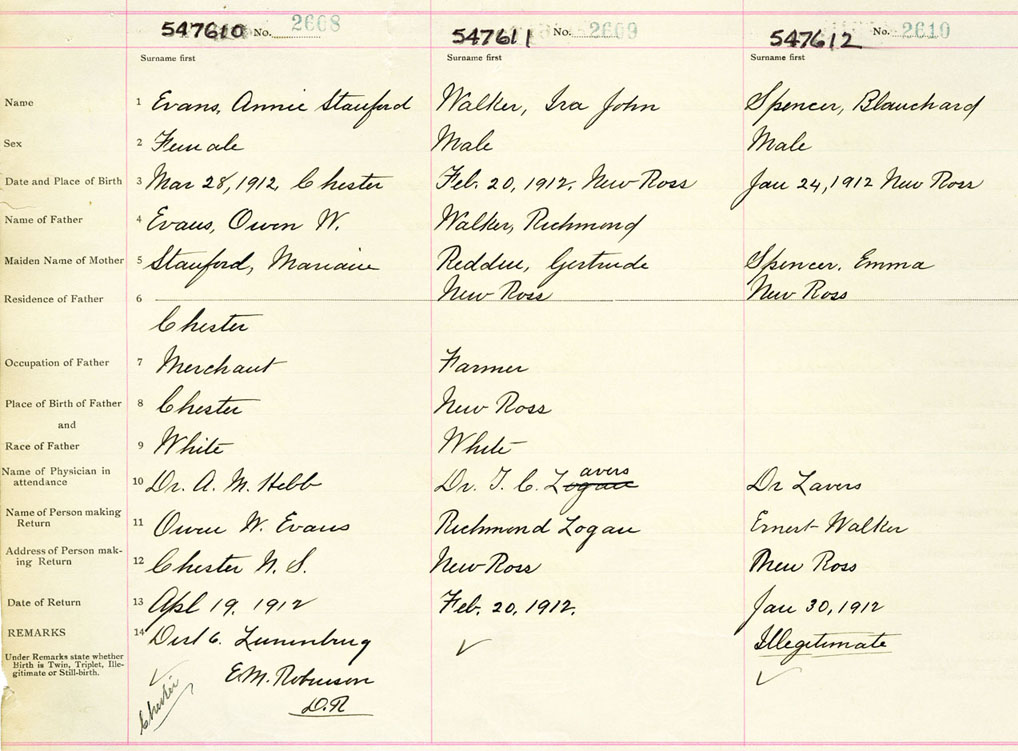 547610 No. 2608 547611 No. 2609 547612 No. 2610
Surname first Surname first Surname first
Name 1 Evans, Annie Stanford Walker, Ira John Spencer, Blanchard
Sex 2 Female Male Male
Date and Place of Birth 3 Mar 28, 1912, Chester Feb. 20, 1912. New Ross Jan 24, 1912 New Ross
Name of Father 4 Evans, Owen W. Walker, Richmond
Maiden Name of Mother 5 Stanford, Redden, Gertrude Spencer, Emma
Residence of Father 6 New Ross New Ross
Chester
Occupation of Father 7 Merchant Farmer
Place of Birth of Father 8 Chester New Ross
and
Race of Father 9 White White
Name of Physician in attendance 10 Dr. A. M. Hebb Dr. T. C. Logan avers Dr Lavers
Name of Person making Return 11 Owen W. Evans Richmond Logan Ernest Walker
Address of Person making Return 12 Chester N. S. New Ross New Ross
Date of Return 13 Apl 19, 1912 Feb. 20, 1912. Jan 30, 1912
REMARKS 14 Dist 6. Lunenburg Illegitimate
Under Remarks state whether
Birth is Twin, Triplet, Ille-
gitimate or Still-birth.
E.M. Robinson
D.R
Chester